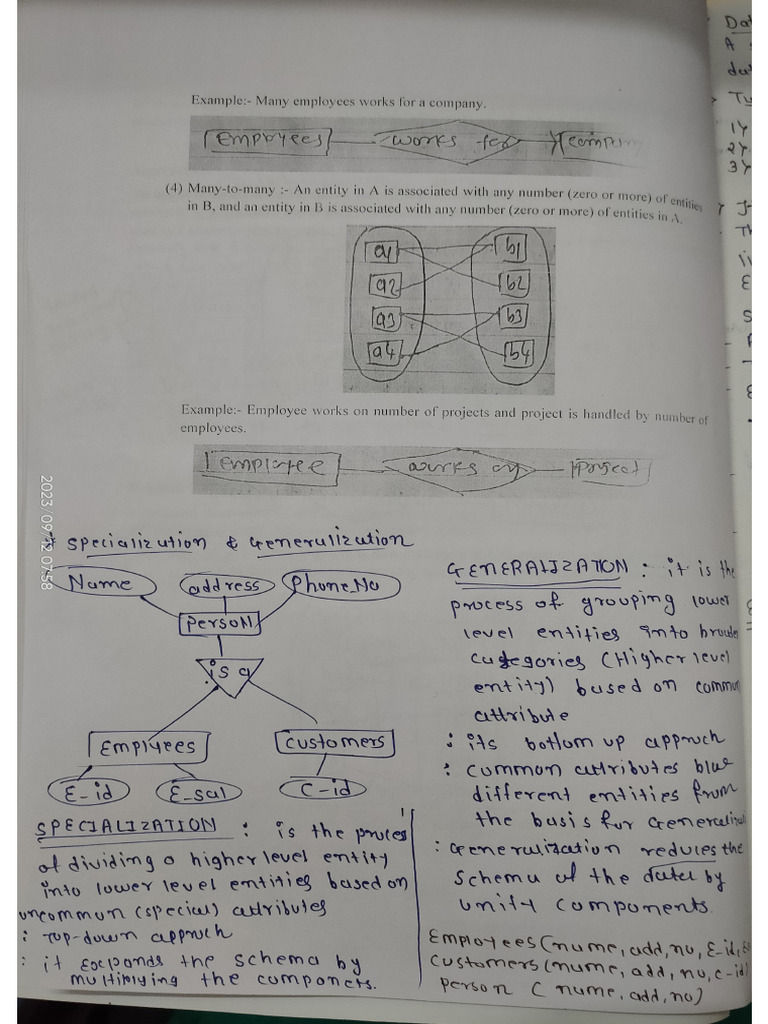 Example:- Many employees works for a company.
Employees works for
(4) Many-to-many :- An entity in A is associated with any number (zero or more) of entities
in B, and an entity in B is associated with any number (zero or more) of entities in A.
a1 b1
a2 b2
a3 b3
a4 b4
Example:- Employee works on number of projects and project is handled by number of
employees.
employee works on Project
2023/09/12 07:58
# Specialization & Generalization
Name address Phone.No
PERSON
is a
Emplyees customers
E-id E-sal C-id
SPECIALIZATION : is the proces
of dividing a higher level entity
into lower level entities based on
uncommon (special) attributes
: Top-down approch
: it Expands the schema by
multiplying the componets.
GENERALIZATION : it is the
process of grouping lower
level entities into
categories (Higher level
entity) based on common
attribute
: its bottom up approch
: common attributes b/w
different entities from
the basis for
: Generalization reduces the
schema of the data by
unity components.
Employees (name, add, no, E-id,
customers (name, add, no, c-id)
person ( name, add, no)
Da
A
da
Ty
1)
2)
3)
Th
E
S